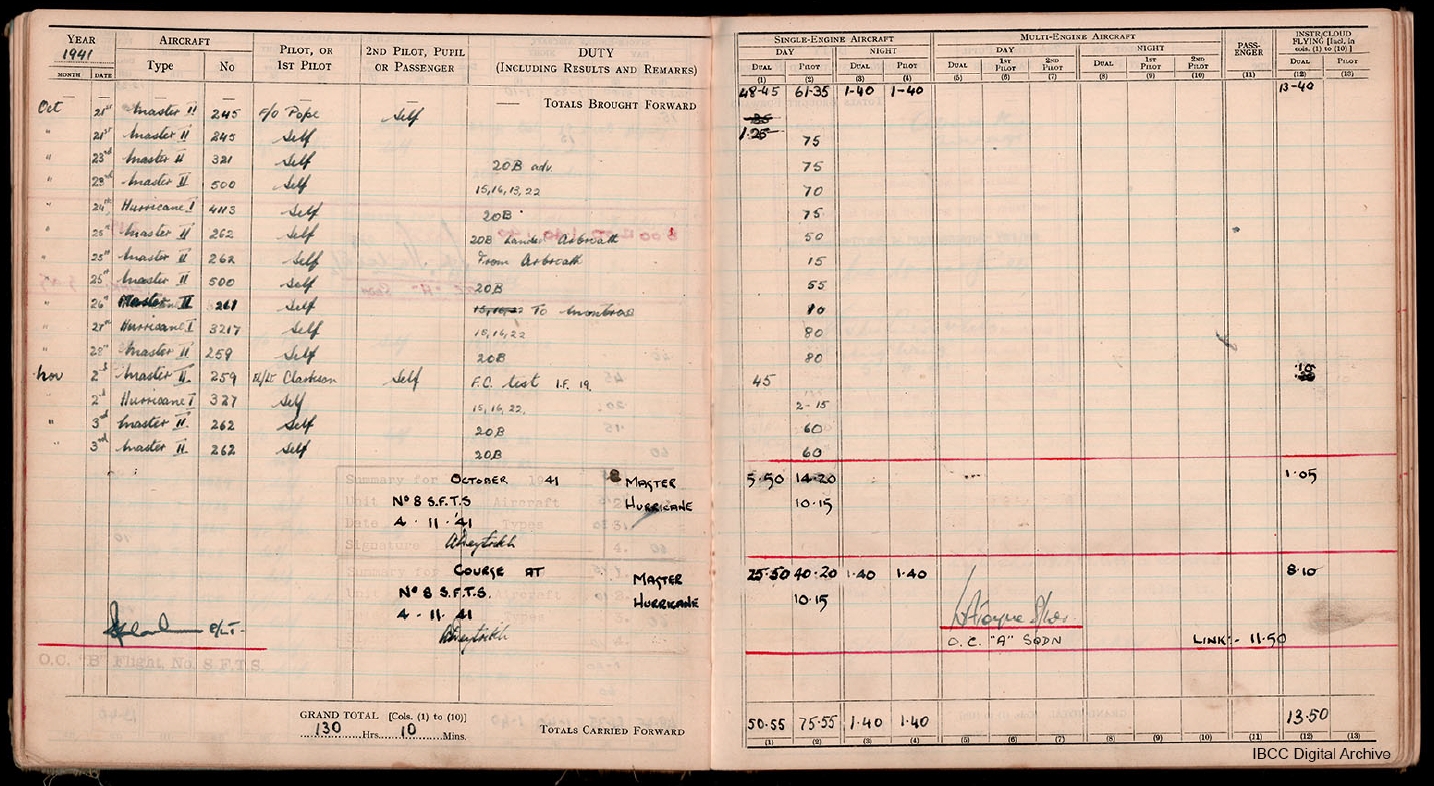 YEAR 1941 AIRCRAFT PILOT, OR 1ST PILOT 2ND PILOT, PUPIL OR PASSENGER DUTY (INCLUDING RESULTS AND REMARKS) SINGLE-ENGINE AIRCRAFT MULTI-ENGINE AIRCRAFT PASS-ENGER INSTR/CLOUD FLYING [Incl. in cols. (1) to (10)]
DAY NIGHT DAY NIGHT
MONTH DATE Type No DUAL PILOT DUAL PILOT DUAL 1ST PILOT 2ND PILOT DUAL 1ST PILOT 2ND PILOT DUAL PILOT
(1) (2) (3) (4) (5) (6) (7) (8) (9) (10) (11) (12) (13)
— — — — — TOTALS BROUGHT FORWARD 48-45 61-35 1-40 1-40 13-40
Oct 21st Master II 245 F/O Pope Self 1.25
" 21st Master II 245 Self 75
" 23rd Master II 321 Self 20B adv. 75
" 23rd Master II 500 Self 15,16,13,22 70
" 24th Hurricane I 4113 Self 20B 75
" 25th Master II 262 Self 20B Landed Arbroath 50
" 25th Master II 262 Self From Arbroath 15
" 25th Master II 500 Self 20B 55
" 26th Master II 261 Self 15,16,22 To Montrose
" 27th Hurricane I 3217 Self 15,16,22 80
" 28th Master II 259 Self 20B 80
Nov 2nd Master II 259 F/Lt Clarkson Self F.C. test I.F. 19. 45
" 2nd Hurricane I 327 Self 15,16,22. 2-15
" 3rd Master II 262 Self 20B 60
" 3rd Master II 262 Self 20B 60
Summary for OCTOBER 1941 MASTER 5.50 14-20 1.05
Unit No 8 S.F.T.S Aircraft HURRICANE 10-15
Date 4 - 11 - '41 Types
Signature
Summary for COURSE AT MASTER 25.50 40-20 1-40 1-40 8-10
Unit No 8 S.F.T.S. HURRICANE 10.15
4 - 11 - 41
F/LT
O.C. "A" SQDN LINK:- 11.50
O.C. "B" Flight, No. 8 F.T.S.
GRAND TOTAL [Cols. (1) to (10)]
130 Hrs. 10 Mins. TOTALS CARRIED FORWARD 50.55 75-55 1-40 1-40 13.50
(1) (2) (3) (4) (5) (6) (7) (8) (9) (10) (11) (12) (13)
IBCC Digital Archive